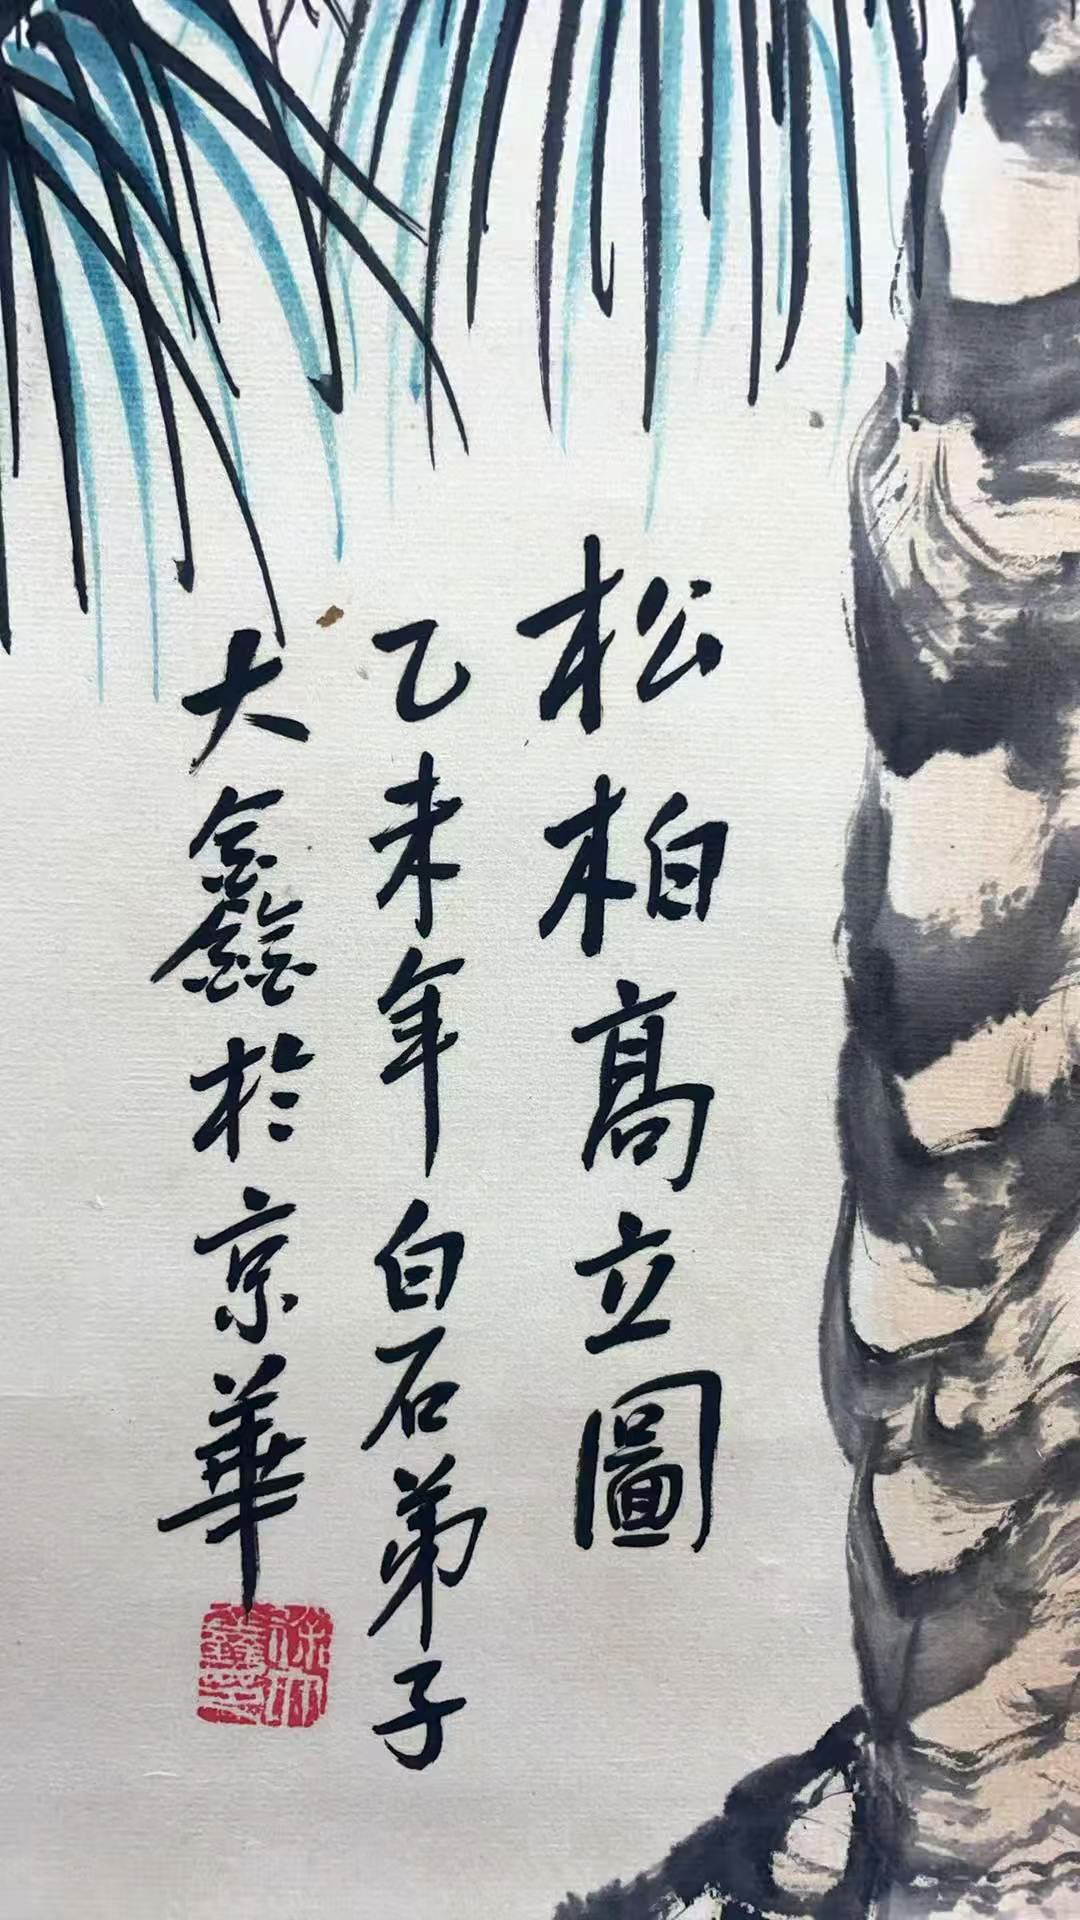 松柏高立圖
乙未年白石弟子
大鑫於京華